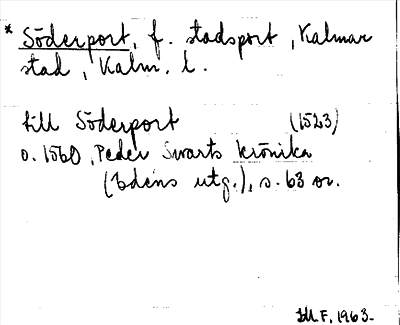 * Söderport, f. stadsport, Kalmar
stad, Kalm. l.
till Söderport (1523)
o. 1560, Peder Swarts krönika
(Edéns utg.), s. 63 or.
F, 1963.